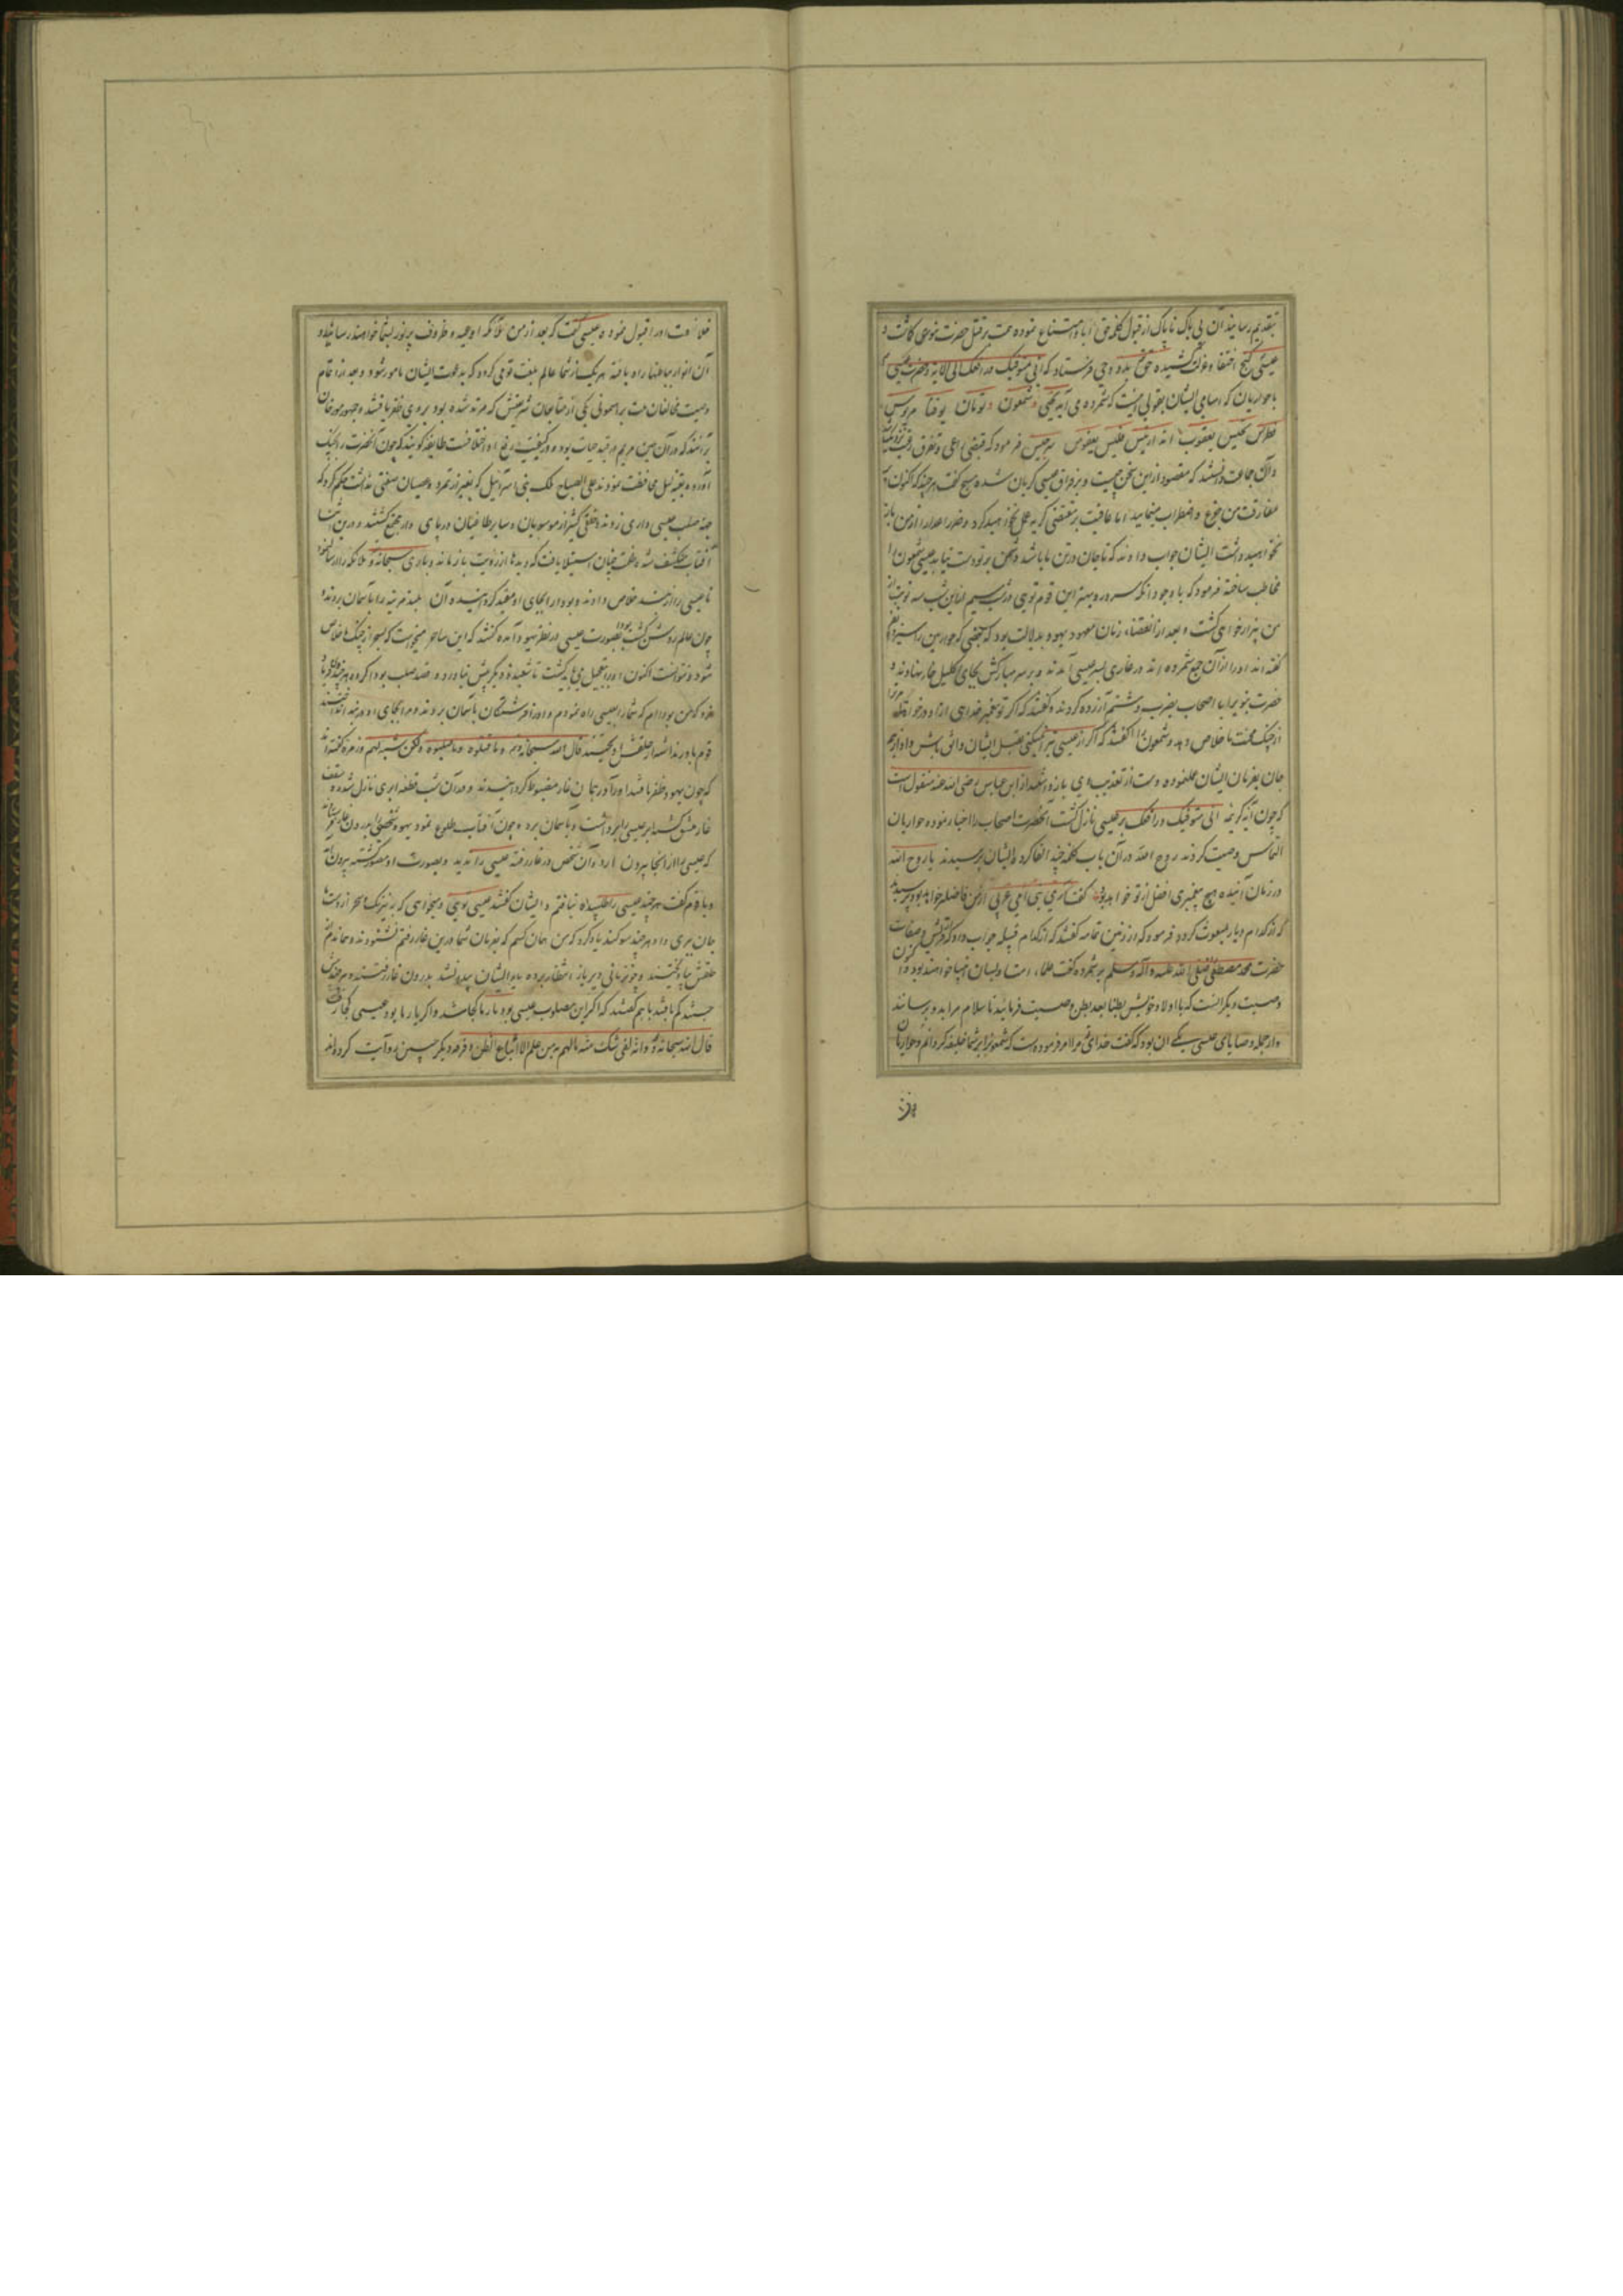 بتقدیم رسانیدند آن بی باک ناپاک از قبول کلمه حق ابا و امتناع نموده همت بر قتل حضرت
عیسی کنج اختفا و عزلت کشیده حق وحی فرستاد که انی متوفیک و رافعک الی الایه و حضرت عیسی
با حواریان که اسامی ایشان بقولی اینست که شمرده می آید یحیی و شمعون و تومان یوقنا مریوس
فطرس یعقوب اند سرجیس فرمود که
و آن جماعت دانستند که مقصود ازین سخن چیست و بر فراق عیسی گریان شده مسیح گفت هر چند که اکنون
مفارقت من جزع و اضطراب مینمایید اما عاقبت
نخواهید داشت ایشان جواب دادند که تا جان در تن ما باشد دشمن بر تو دست نیابد عیسی شمعون را
مخاطب ساخته فرمود که با وجود آنکه سرور و بهتر این قوم تویی
من بیزار خواهی گشت و بعد از انقضاء زمان معهود یهود بدلالت یهودا که بعضی که حواریین را سیزده نفر
گفته اند او را از آن جمع شمرده اند در غاری بسر عیسی آمدند و بر سر مبارکش بجای اکلیل خار نهادند و
حضرت نبوی را با اصحاب بضرب و شتم آزرده کردند و گفتند که اگر تو پیغمبر خدایی
از چنگ محنت ما خلاص دهد و شمعون را گفتند که اگر از عیسی تبرا میکنی
جان بفرمان ایشان عمل نموده دست از تعذیب وی باز داشتند از ابن عباس رضی الله عنه منقول است
که چون آیه کریمه انی متوفیک و رافعک بر عیسی نازل گشت آنحضرت اصحاب را اخبار نموده حواریان
التماس وصیت کردند روح الله در آن باب کلمه چند القا کرد و ایشان پرسیدند یا روح الله
در زمان آینده هیچ پیغمبری افضل از تو خواهد بود گفت آری نبی امی عربی از من فاضلتر خواهد بود پرسیدند
که از کدام دیار مبعوث گردد فرمود که از زمین تهامه گفتند که از کدام قبیله جواب داد که قریش و صفات
حضرت محمد مصطفی صلی الله علیه و آله و سلم بر شمرده گفت علماء امت او بسان انبیا خواهند بود
وصیت دیگر آنست که با اولاد خویش بطنا بعد بطن وصیت فرمایید تا سلام مرا بدو برسانند
و از جمله وصایای عیسی یکی آن بود که گفت خدای تعالی مرا امر فرموده است که شمعون را بر شما خلیفه گردانم و حواریان
خلافت او را قبول نموده عیسی گفت که بعد از من ملائکه اوعیه و ظروف پر نور بشما خواهند رسانید و
آن انوار بباطنها راه یافته هر یک از شما عالم بلغت قومی گردد که بدعوت ایشان مامور شود و بعد از اتمام
وصیت مخالفان ملت برهنمونی یکی از متابعان شریعتش که مرتد شده بود بر وی ظفر یافتند و جمهور مورخان
برآنند که در آن حین مریم در قید حیات بود و در کیفیت رفع او اختلافست طایفه گویند که چون آنحضرت را بچنگ
آورده بقیه لیل محافظت نمودند علی الصباح ملک بنی اسرائیل که بغیر از تمرد و عصیان صفتی نداشت حکم کرد که
جهة صلب عیسی داری زدند و خلقی کثیر از موسویان و سایر طاغیان در پای دار مجتمع گشتند و درین اثنا
آفتاب منکسف شد و ظلمت چنان استیلا یافت که دیدها از رؤیت باز ماند و باری سبحانه و تعالی ملائکه را ارسال نمود
تا عیسی را از بند خلاص دادند و یهودا را بجای او مقید گردانیده آن بلند مرتبه را بآسمان بردند
چون عالم روشن گشت یهودا بصورت عیسی در نظر یهود آمده گفتند که این ساحر میخواست که بسحر از چنگ ما خلاص
شود و نتوانست اکنون او را بتعجیل می باید کشت تا شعبده دیگر پیش نیاورد و قصد صلب یهودا کرده هر چند فریاد
میزد که من یهودا ام که شما را بعیسی راه نمودم و او را فرشتگان بآسمان بردند و مرا بجای او در بند انداختند
قوم باور نداشته از حلقش آویختند قال الله سبحانه و تعالی و ما قتلوه و ما صلبوه و لکن شبه لهم و زمره گفته اند
که چون یهود ظفر یافتند او را آورده در همان غار مضبوط گردانیدند و در آن شب قطعه ابری نازل شده سقف
غار منشق گشت ابر عیسی را برداشت و بآسمان برد و چون آفتاب طلوع نمود یهود شخصی را بدرون غار فرستادند
که عیسی را از آنجا بیرون آرد و آن شخص در غار رفته عیسی را ندید و بصورت او مصور گشته بیرون آمد
و با قوم گفت هر چند عیسی را طلبیدم نیافتم و ایشان گفتند عیسی تویی و میخواهی که بنیرنگ و سحر از دست ما
جان ببری و او هر چند سوگند یاد کرد که من همان کسم که بفرمان شما درین غار رفتم نشنودند و همان دم از
حلقش بیاویختند و چون زمانی دیر باز انتظار برده یار ایشان پیدا نشد بدرون غار رفتند و هر چند
جستند کم یافتند با هم گفتند که اگر این مصلوب عیسی بود یار ما کجا شد و اگر یار ما بود عیسی کجا رفت
قال الله سبحانه و تعالی و انهم لفی شک منه ما لهم به من علم الا اتباع الظن و فرقه دیگر چنین روایت کرده اند